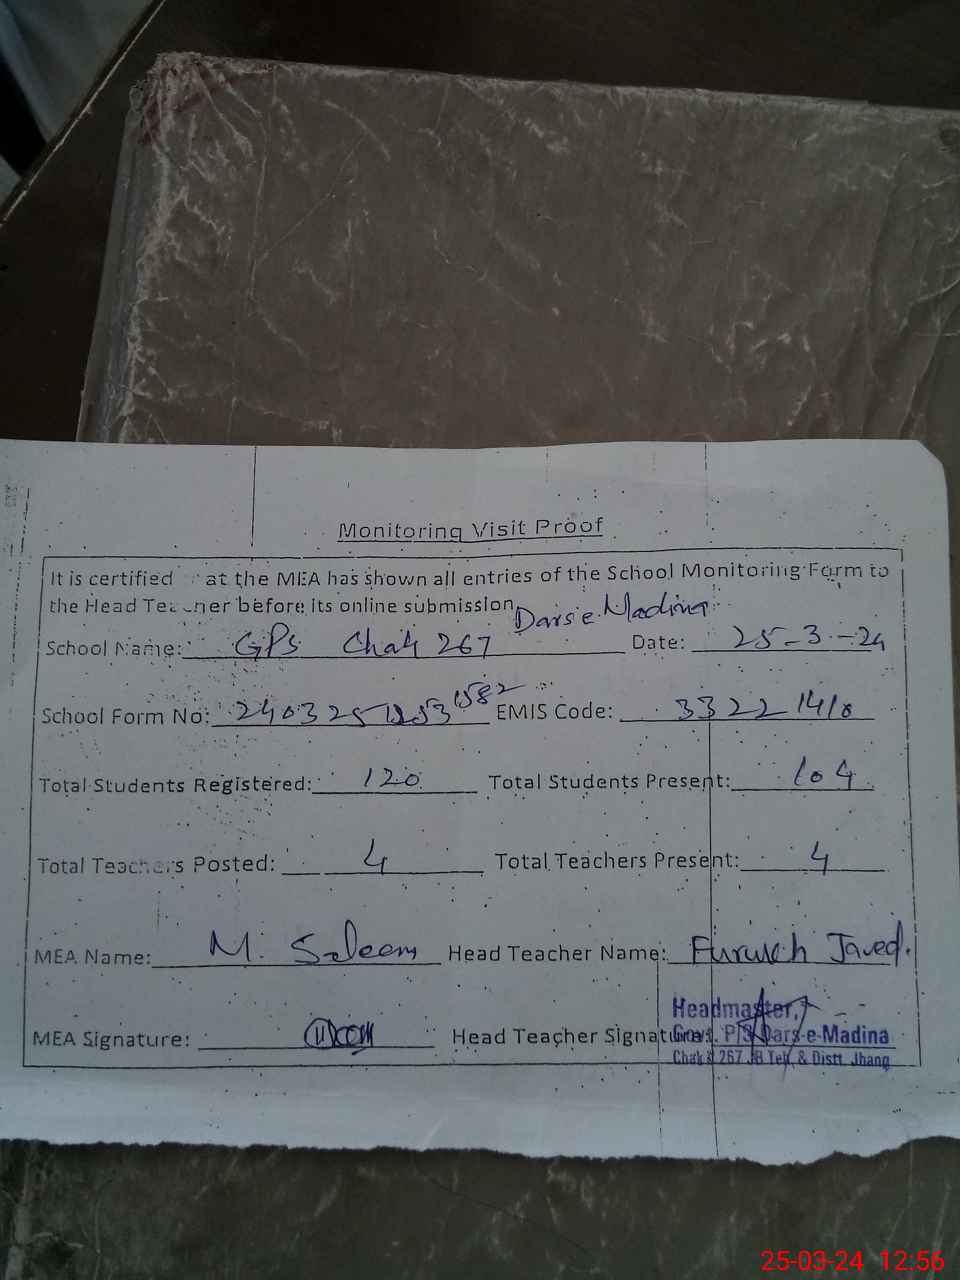 Monitoring Visit Proof
It is certified at the MEA has shown all entries of the School Monitoring Form to
the Head Teacher before its online submission.
School Name: GPS Chak 267 Darse Madina Date: 25-3-24
School Form No: EMIS Code: 33221410
Total Students Registered: 120 Total Students Present: 104
Total Teachers Posted: 4 Total Teachers Present: 4
MEA Name: M. Saleem Head Teacher Name: Javed.
MEA Signature: Head Teacher Signature:
Headmaster,
Govt. P/S Dars-e-Madina
Chak # 267 JB Teh, & Distt. Jhang
25-03-24 12:56